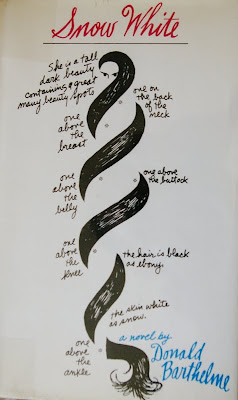 Snow White
She is a tall
dark beauty
containing a great
many beauty spots
one on
the back
of the
neck
one
above
the
breast
one
above
the
belly
one above
the buttock
one
above
the
knee
the hair is black
as ebony,
the skin white
as snow.
one
above
the
ankle
a novel by
Donald
Barthelme